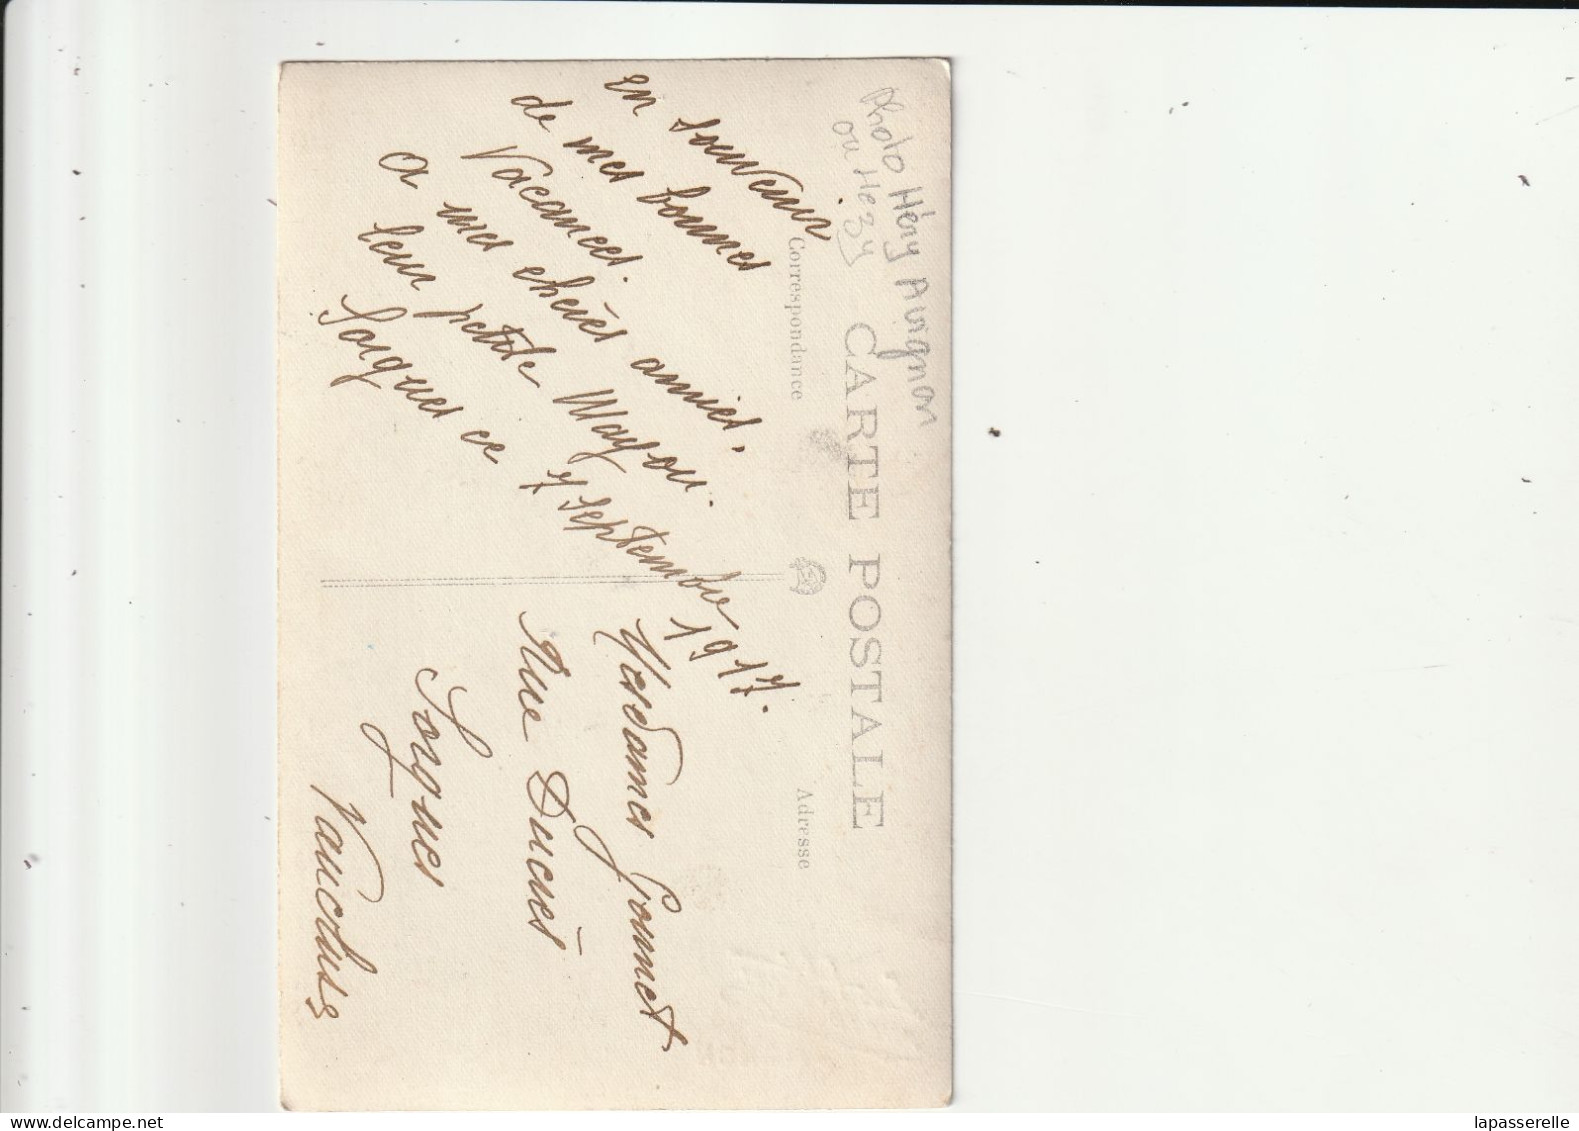 Photo Héry Avignon
ou Hezy
CARTE POSTALE
Correspondance
en souvenir
de mes bonnes
Vacances.
a mes chères amies,
leur petite Mayou.
Sorgues ce 7 Septembre 1917.
Adresse
Mesdames Gounet
Rue Ducrès
Sorgues
Vaucluse
delcampe.net
lapasserelle